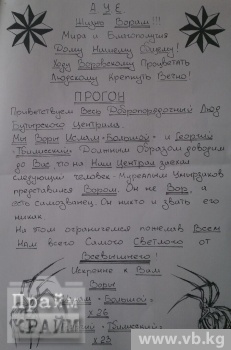 А У Е
Жизнь Ворам!!!
Мира и Благополучия
Дому Нашему Общему!
Ходу Воровскому Процветать
Людскому Крепнуть Вечно!
ПРОГОН
Приветствуем Весь Добропорядочный Люд
Бутырского Централа.
Мы Воры Ислам «Большой» и Георгий
«Тбилисский» Должным Образом доводим
до Вас, что на Наш Централ заехал
следующий человек - Муреалим Умирзаков
представился Вором. Он не Вор, а
есть самозванец. Он никто и звать его
никак.
На этом ограничимся пожелав Всем
Нам всего Самого Светлого от
Всевышнего!
Искренне к Вам
Воры
«Большой»
х 26
«Тбилисский»
х 23
Прайм
КРАЙМ
www.vb.kg